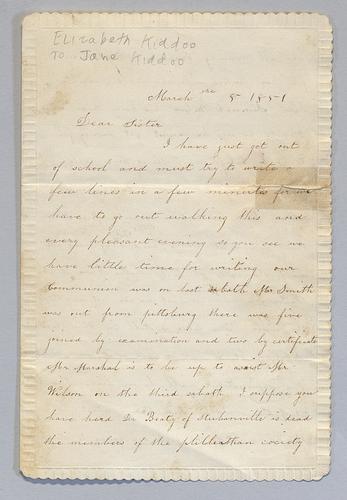 Elizabeth Kiddoo
To Jane Kiddoo
March the 8 1851
Dear Sister
I have just got out
of school and must try to write a
few lines in a few minutes for we
have to go out walking this and
every pleasant evening so you see we
have little time for writing our
Communion was on last sabath Mr Smith
was out from pittsburg there was five
joined by examonation and two by certificate
Mr Marshal is to be up to assist Mr
Wilson on the third sabath I suppose you
have herd Dr Beaty of Stubanville is dead
the members of the society